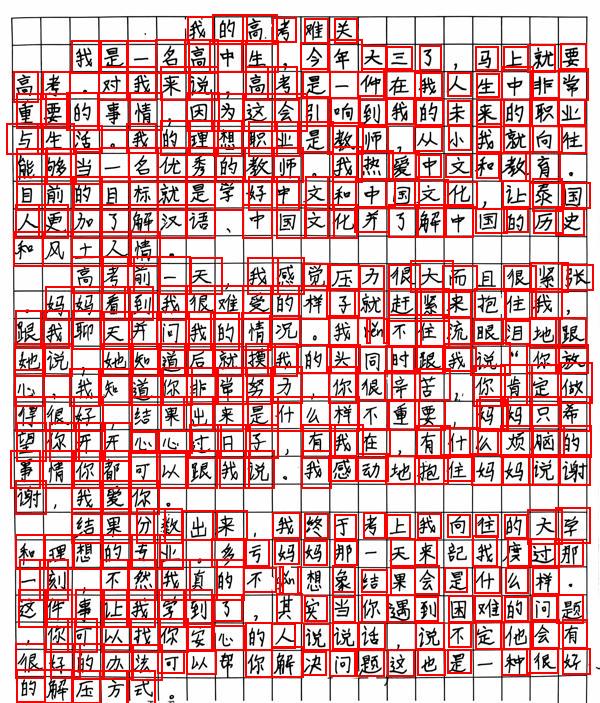 我的高考难关
我是一名高中生，今年大三了，马上就要
高考。对我来说，高考是一件在我人生中非常
重要的事情，因为这会引响到我的未来的职业
与生活。我的理想职业是教师，从小我就向往
能够当一名优秀的教师。我热爱中文和教育。
目前的目标就是学好中文和中国文化，让泰国
人更加了解汉语、中国文化并了解中国的历史
和风土人情。
高考前一天，我感觉压力很大而且很紧张
。妈妈看到我很难爱的样子就赶紧来抱住我，
跟我聊天并问我的情况。我不住流眼泪地跟
她说，她知道后就摸我的头同时跟我说“你放
心，我知道你非常努力，你很辛苦，你肯定做
得很好，结果出来是什么样不重要，妈妈只希
望你开开心心过日子，有我在，有什么烦脑的
事情你都可以跟我说。我感动地抱住妈妈说谢
谢，我爱你。
结果分数出来，我终于考上我向住的大学
和理想的专业。多亏妈妈那一天来記我度过那
一刻，不然我真的不想象结果会是什么样。
这件事让我学到了，其实当你遇到困难的问题
，你可以找你安心的人说说话，说不定他会有
很好的办法可以帮你解决问题这也是一种很好
的解压方式。